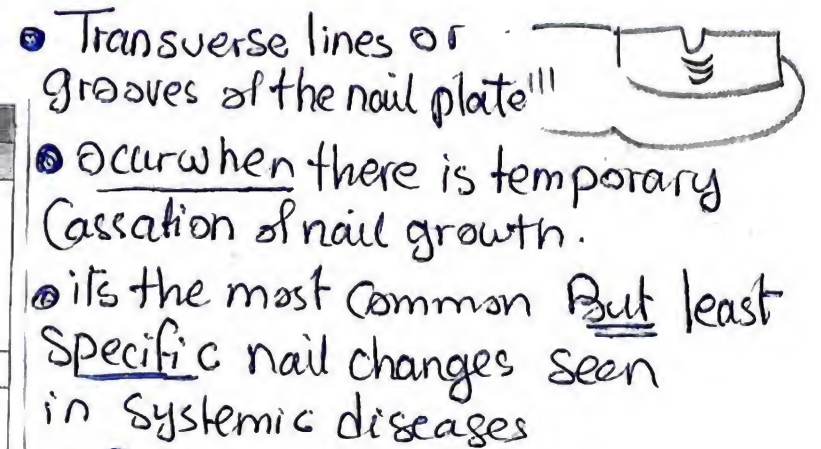 • Transverse lines or
grooves of the nail plate'''
• Ocurwhen there is temporary
Cassation of nail growth.
• it's the most common But least
specific nail changes seen
in systemic diseases